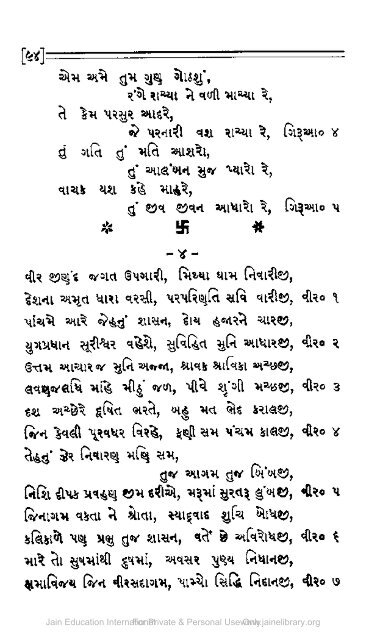 [૯૪]
એમ અમે તુમ ગુણ ગોઠશું,
રંગે રાચ્યા ને વળી માચ્યા રે,
તે કેમ પરસુર આદરે,
જે પરનારી વશ રાચ્યા રે, ગિરૂઆ૦ ૪
તું ગતિ તું મતિ આશરો,
તું આલંબન મુજ પ્યારો રે,
વાચક યશ કહે માહરે,
તું જીવ જીવન આધારો રે, ગિરૂઆ૦ ૫
卐
- ૪ -
વીર જીણંદ જગત ઉપગારી, મિથ્યા ધામ નિવારીજી,
દેશના અમૃત ધારા વરસી, પરપરિણતિ સવિ વારીજી, વીર૦ ૧
પાંચમે આરે જેહનું શાસન, દોય હજારને ચારજી,
યુગપ્રધાન સૂરીશ્વર વહેશે, સુવિહિત મુનિ આધારજી, વીર૦ ૨
ઉત્તમ આચારજ મુનિ અજ્જા, શ્રાવક શ્રાવિકા અચ્છજી,
લવણજલધિ માંહિ મીઠું જળ, પીવે શૃંગી મચ્છજી, વીર૦ ૩
દશ અચ્છેરે દૂષિત ભરતે, બહુ મત ભેદ કરાલજી,
જિન કેવલી પૂરવધર વિરહે, ફણી સમ પંચમ કાલજી, વીર૦ ૪
તેહનું ઝેર નિવારણ મણિ સમ,
તુજ આગમ તુજ બિંબજી,
નિશિ દીપક પ્રવહણ જીમ દરીએ, મરૂમાં સુરતરૂ લુંબજી, વીર૦ ૫
જિનાગમ વકતા ને શ્રોતા, સ્યાદ્વાદ શુચિ બોધજી,
કલિકાળે પણ પ્રભુ તુજ શાસન, વર્તે છે અવિરોધજી, વીર૦ ૬
મારે તો સુષમાંથી દુષમાં, અવસર પુણ્ય નિધાનજી,
ક્ષમાવિજય જિન વીરસદાગમ, પામ્યો સિદ્ધિ નિદાનજી, વીર૦ ૭
Jain Education International
For Private & Personal Use Only
www.jainelibrary.org